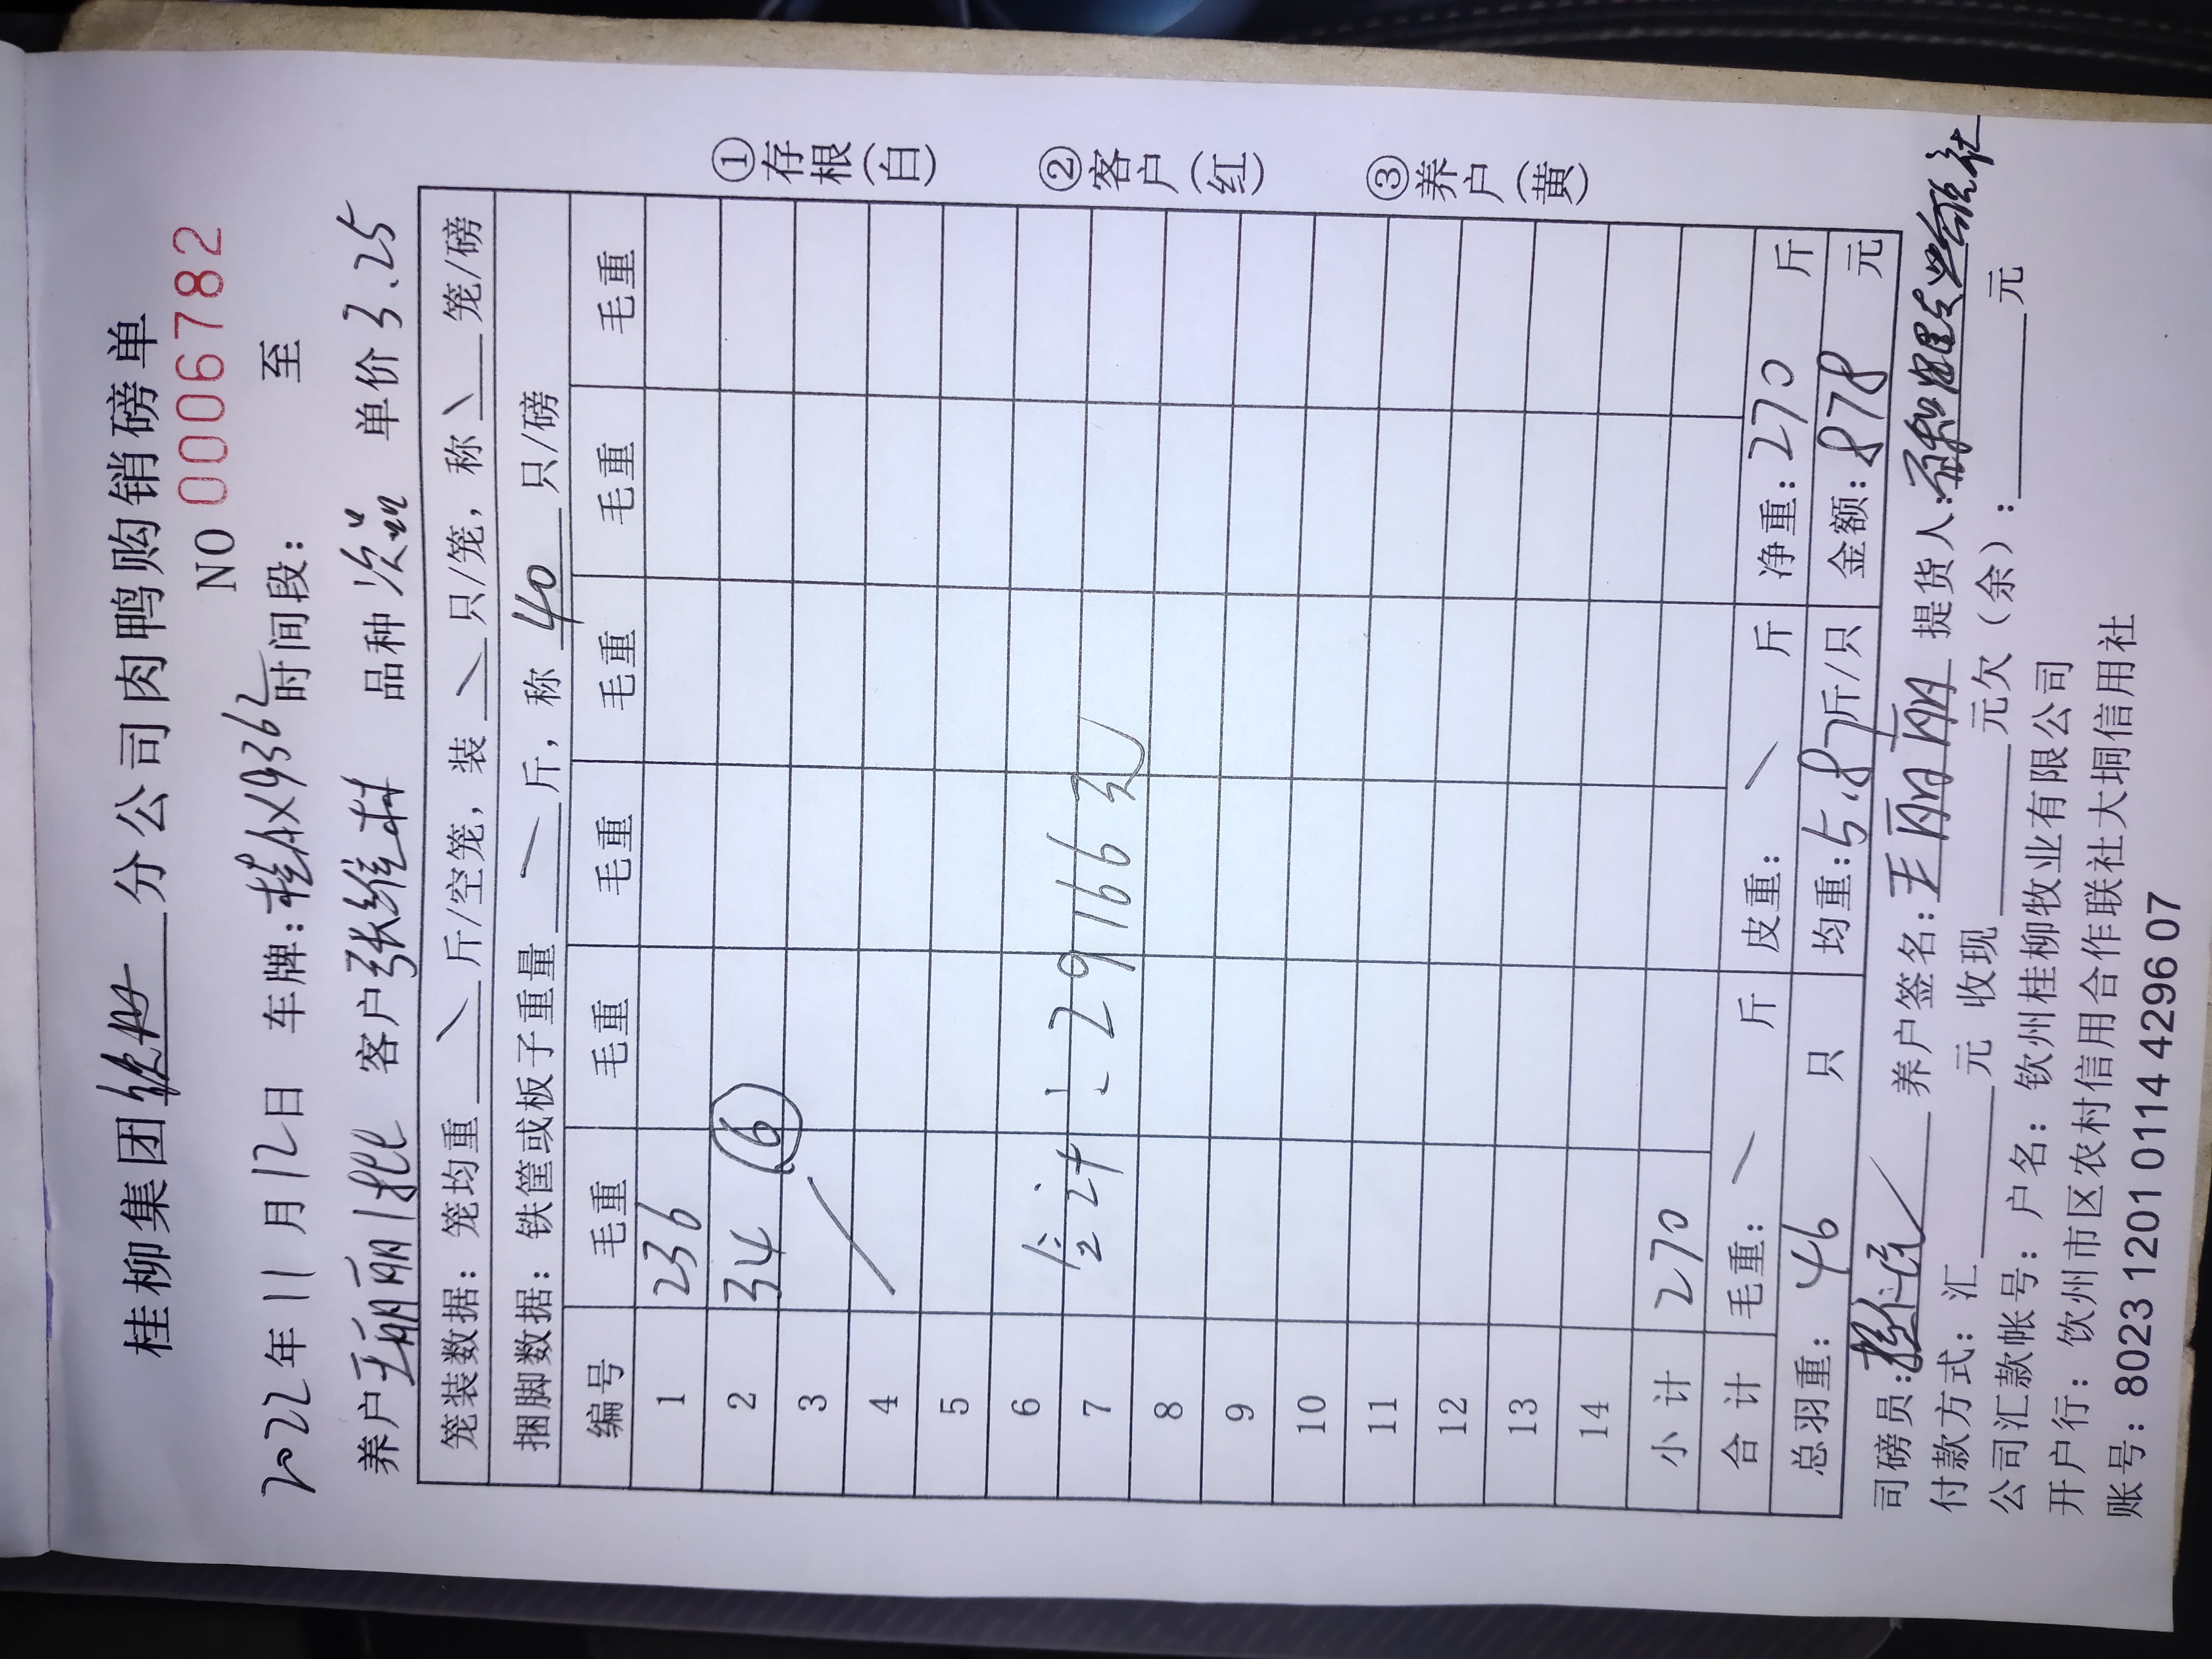 桂柳集团钦州分公司肉鸭购销磅单
NO 0006782
2022年11月12日 车牌:桂AX9362时间段: 至
养户王丽丽1批 客户张维林 品种次品 单价3.25
笼装数据:笼均重\斤/空笼,装\只/笼,称\笼/磅
捆脚数据:铁筐或板子重量\斤,称40只/磅
编号 毛重 毛重 毛重 毛重 毛重 毛重
1 236
2 34 6
3
4
5
6
7 合计:29166元
8
9
10
11
12
13
14
小计 270
合计 毛重:\斤 皮重:\斤 净重:270斤
总羽重:46只 均重:5.87斤/只 金额:878元
司磅员: 养户签名:王丽丽 提货人:
付款方式:汇 元 收现 元欠(余): 元
公司汇款帐号:户名:钦州桂柳牧业有限公司
开户行:钦州市区农村信用合作联社大垌信用社
账号:8023 1201 0114 4296 07
①存根(白)
②客户(红)
③养户(黄)